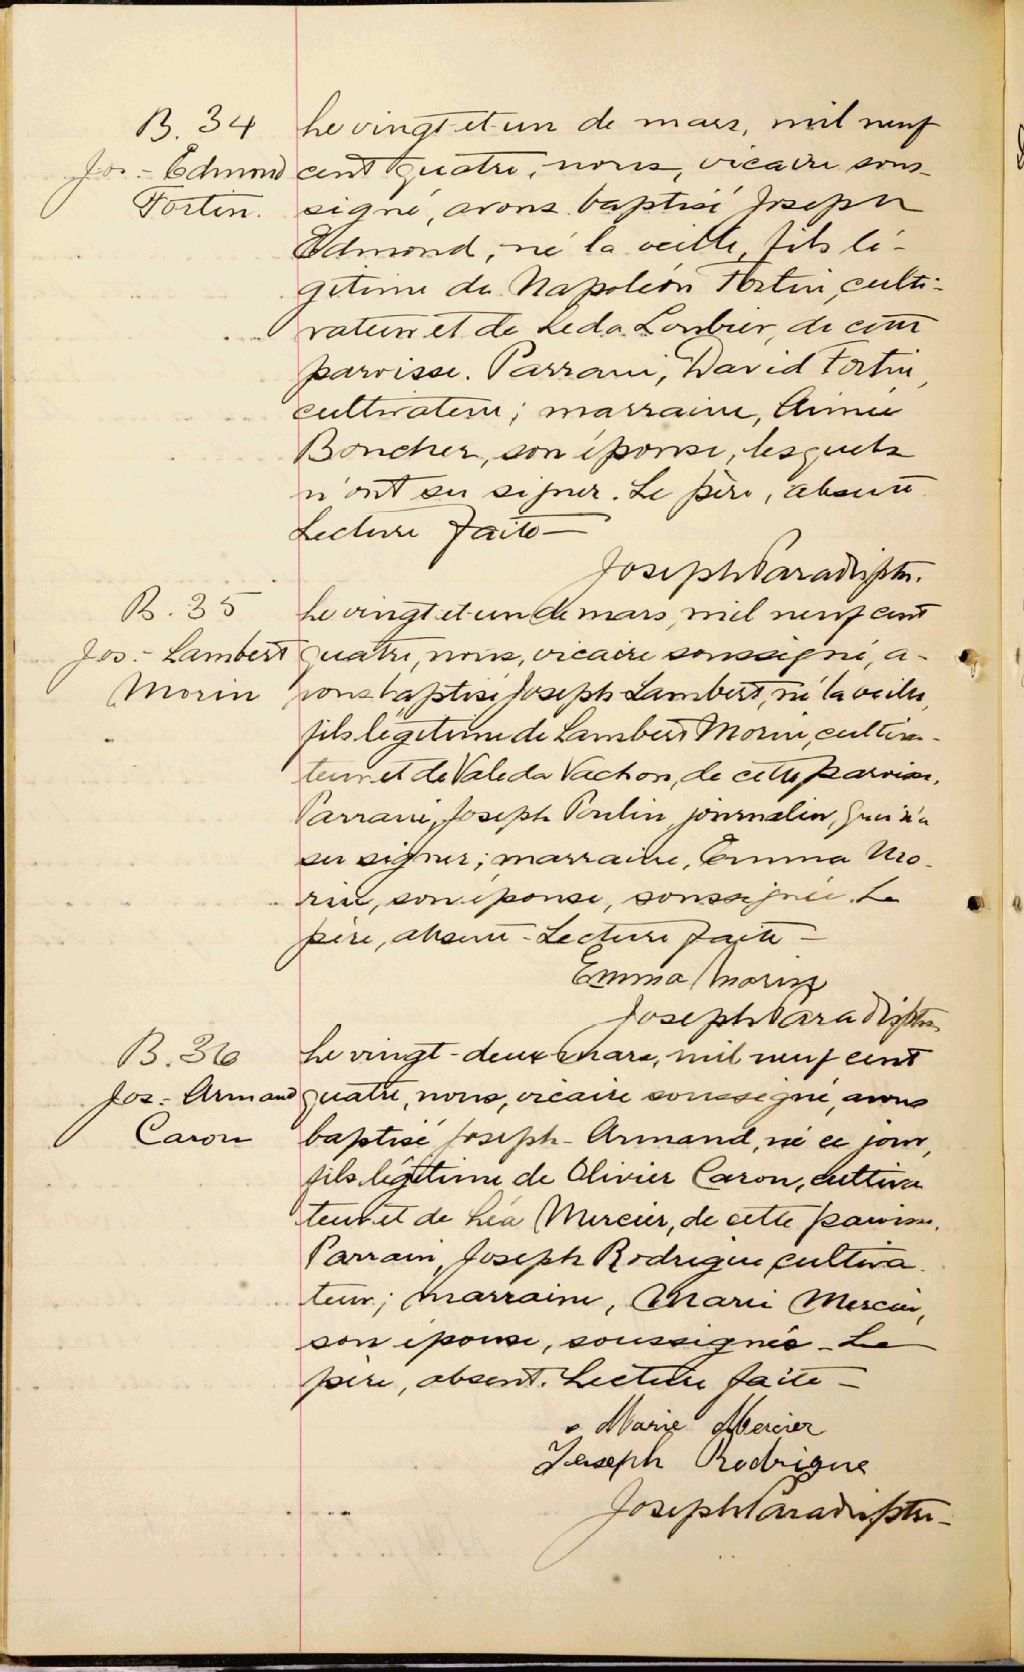 B. 34
Jos.- Edmond
Fortin.
Le vingt-et-un de mars, mil neuf
cent quatre, nous, vicaire sous-
signé, avons baptisé Joseph
Edmond, né la veille, fils lé-
gitime de Napoléon Fortin, culti-
vateur et de Leda Loubier, de cette
paroisse. Parrain, David Fortin,
cultivateur; marraine, Aimée
Boucher, son épouse, lesquels
n'ont su signer. Le père, absent
Lecture faite—
Joseph Paradis ptre.
B. 35
Jos.- Lambert
Morin
Le vingt et un de mars, mil neuf cent
quatre, nous, vicaire soussigné, a-
vons baptisé Joseph-Lambert, né la veille,
fils légitime de Lambert Morin, cultiva-
teur et de Valeda Vachon, de cette paroisse.
Parrain, Joseph Poulin, journalier, qui n'a
su signer; marraine, Emma Mo-
rin, son épouse, soussignée. Le
père, absent - Lecture faite —
Emma Morin
Joseph Paradis ptre
B. 36
Jos.- Armand
Caron
Le vingt-deux mars, mil neuf cent
quatre, nous, vicaire soussigné, avons
baptisé Joseph-Armand, né ce jour,
fils légitime de Olivier Caron, cultiva
teur et de Léa Mercier, de cette paroisse.
Parrain, Joseph Rodrigue cultiva-
teur; marraine, Marie Mercier,
son épouse, soussignés - Le
père, absent. Lecture faite —
Marie Mercier
Joseph Rodrigue
Joseph Paradis ptre-